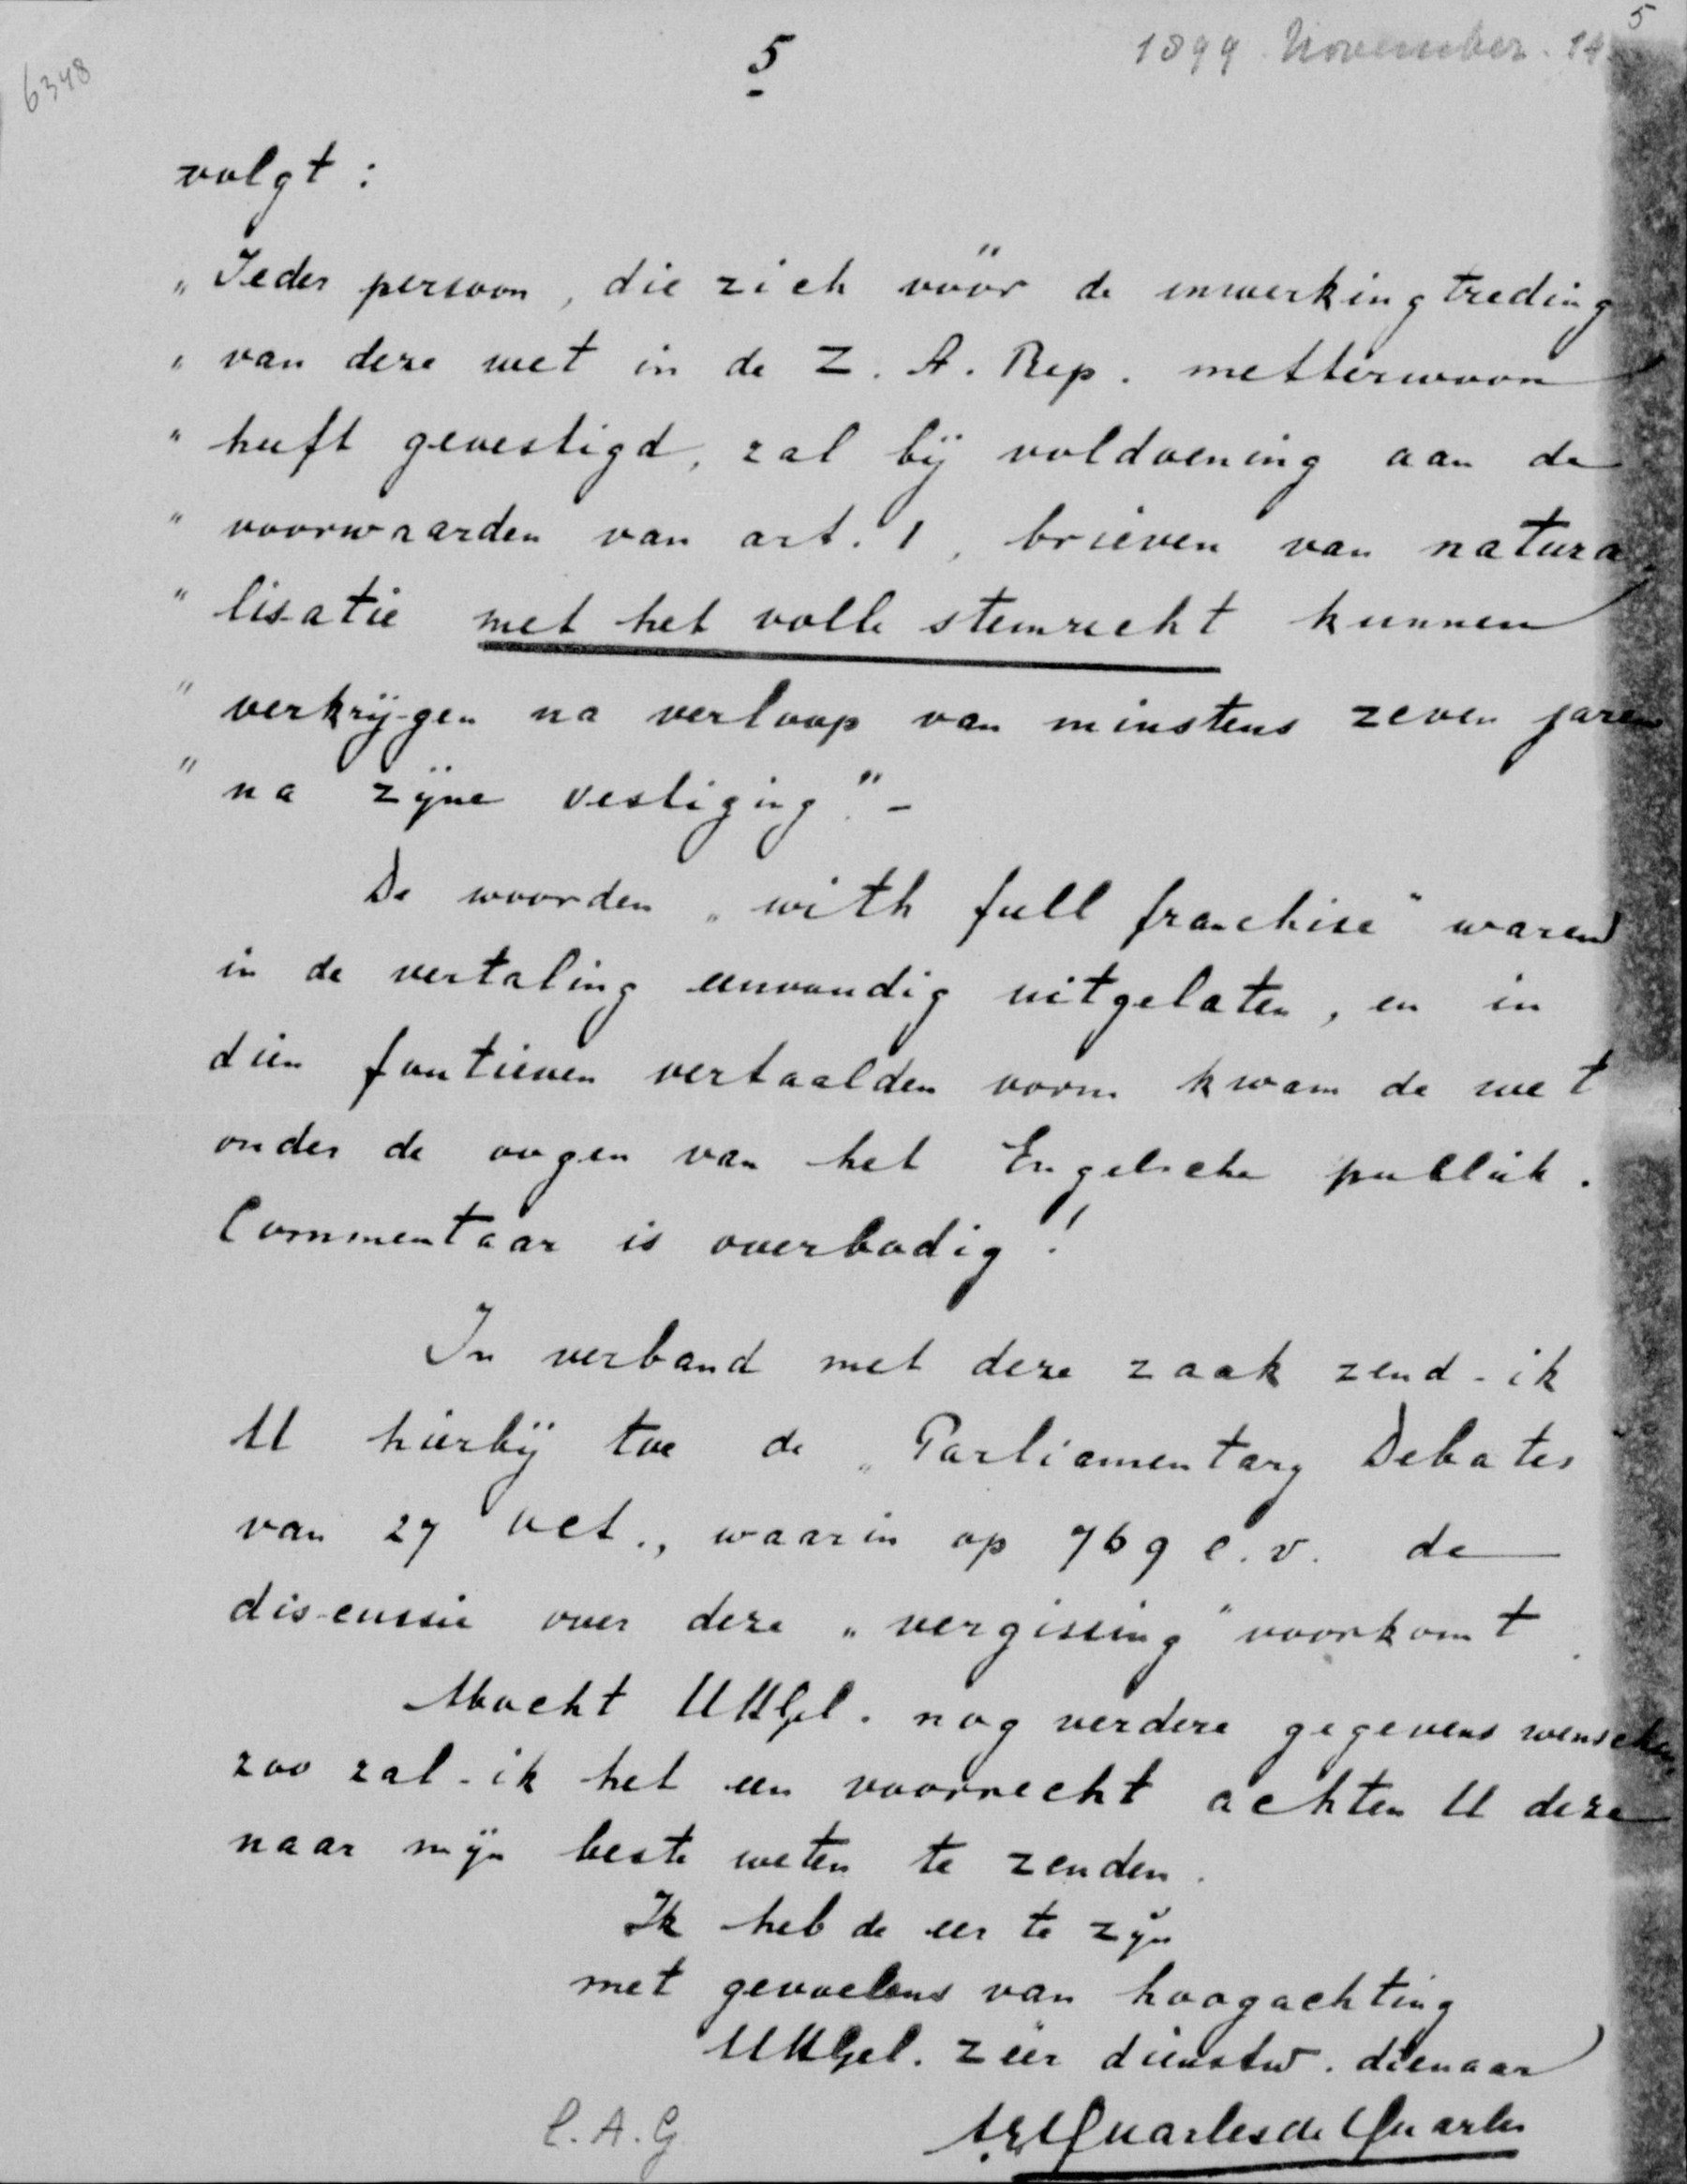 5
1899 November. 14
5
6348
volgt :
„ Ieder persoon, die zich vóór de inwerkingtreding
„ van deze wet in de Z. A. Rep. metterwoon
" heeft gevestigd, zal bij voldoening aan de
" voorwaarden van art. 1, brieven van natura
" lisatie met het volle stemrecht kunnen
" verkrijgen na verloop van minstens zeven jaren
" na zijne vestiging." -
De woorden „with full franchise" waren
in de vertaling eenvoudig uitgelaten, en in
dien foutieven vertaalden vorm kwam de wet
onder de oogen van het Engelsche publiek.
Commentaar is overbodig!
In verband met deze zaak zend-ik
U hierbij toe de „Parliamentary Debates
van 27 Oct., waarin op 769 e.v. de
discussie over deze „vergissing" voorkomt.
Mocht UHGel. nog verdere gegevens wenschen,
zoo zal-ik het een voorrecht achten U deze
naar mijn beste weten te zenden.
Ik heb de eer te zijn
met gevoelens van hoogachting
UHGel. zeer dienstw. dienaar
Quarles de Quarles
C.A.G